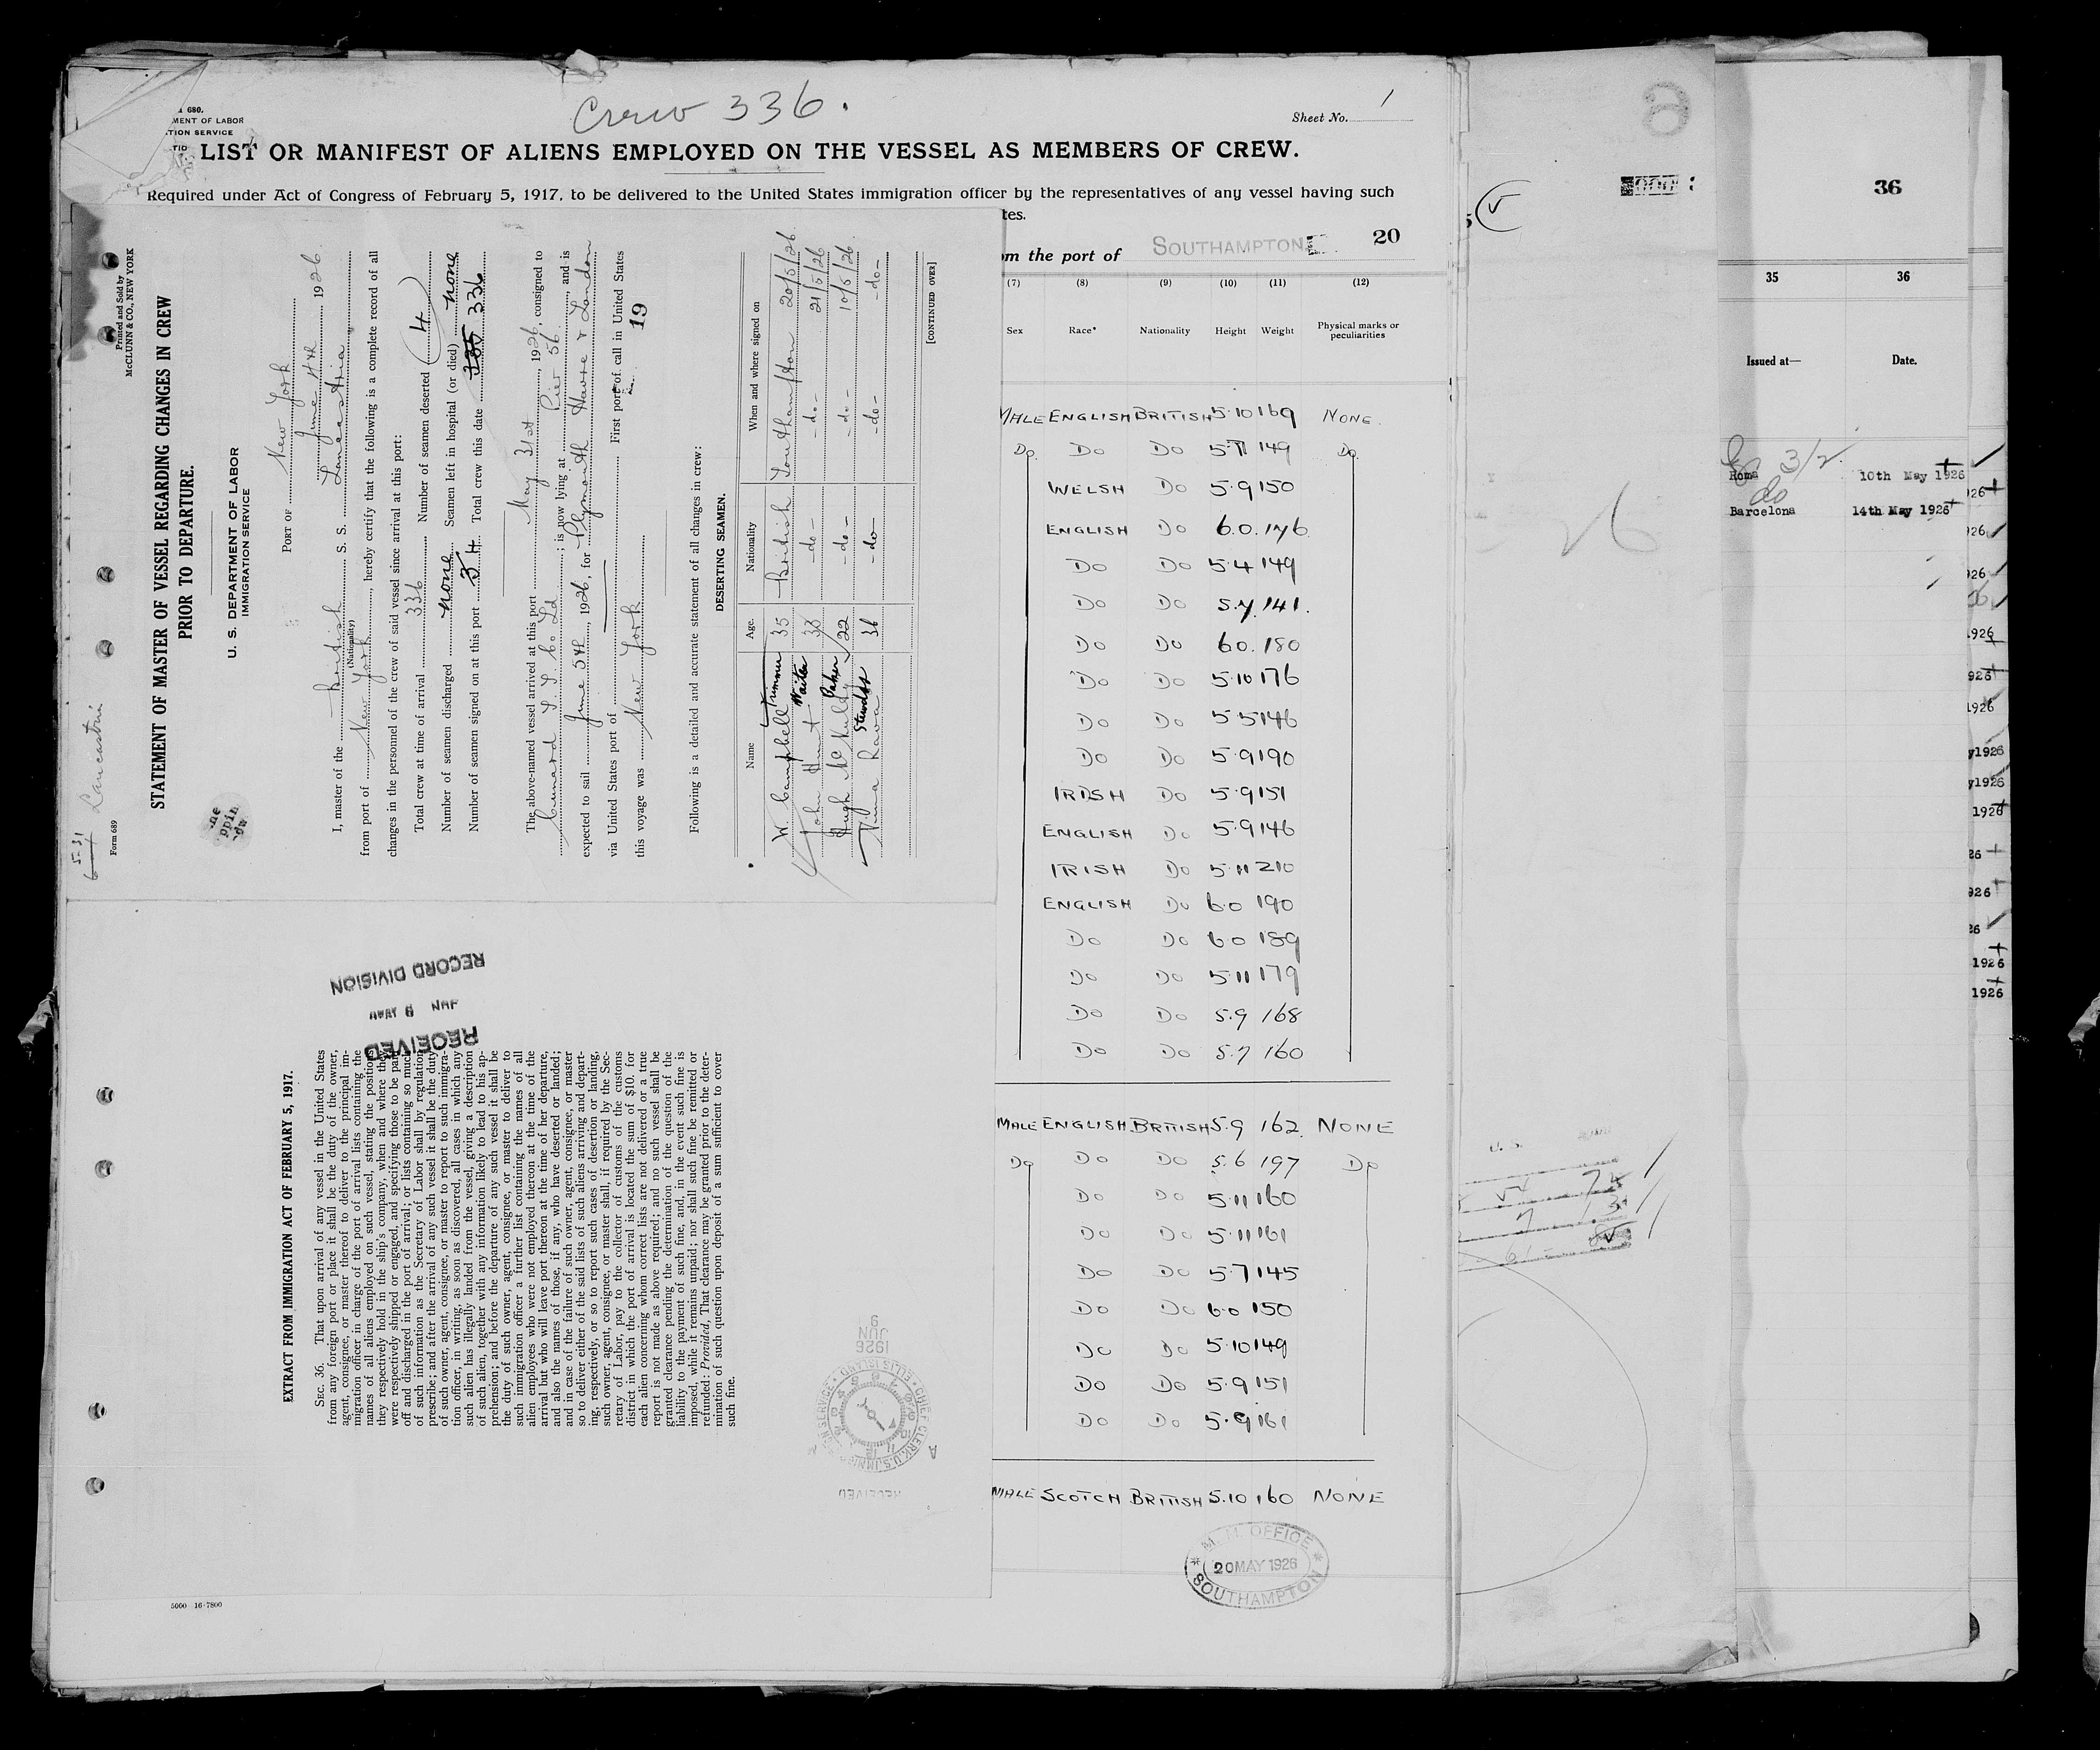 Crew 336.
Sheet No. 1
680.
MENT OF LABOR
TION SERVICE
LIST OR MANIFEST OF ALIENS EMPLOYED ON THE VESSEL AS MEMBERS OF CREW.
Required under Act of Congress of February 5, 1917, to be delivered to the United States immigration officer by the representatives of any vessel having such
tes.
om the port of SOUTHAMPTON 20
(7) (8) (9) (10) (11) (12)
Sex Race* Nationality Height Weight Physical marks or peculiarities
MALE ENGLISH BRITISH 5.10 169 NONE.
Do Do Do 5.11 149 Do
WELSH Do 5.9 150
ENGLISH Do 6.0. 176
Do Do 5.4 149
Do Do 5.7. 141.
Do Do 6.0. 180
Do Do 5.10 176
Do Do 5.5 146
Do Do 5.9 190
IRISH Do 5.9 151
ENGLISH Do 5.9 146
IRISH Do 5.11 210
ENGLISH Do 6.0 190
Do Do 6.0 189
Do Do 5.11 179
Do Do 5.9 168
Do Do 5.7 160
MALE ENGLISH BRITISH 5.9 162. NONE
Do Do Do 5.6 197 Do
Do Do 5.11 160
Do Do 5.11 161
Do Do 5.7 145
Do Do 6.0 150
Do Do 5.10 149
Do Do 5.9 151
Do Do 5.9 161
MALE SCOTCH BRITISH 5.10 160 NONE
OFFICE
20 MAY 1926
SOUTHAMPTON
5000 16-7800
5-31
Form 689
Printed and Sold by
McCLUNN & CO., NEW YORK
STATEMENT OF MASTER OF VESSEL REGARDING CHANGES IN CREW
PRIOR TO DEPARTURE.
U. S. DEPARTMENT OF LABOR
IMMIGRATION SERVICE
PORT OF New York
June 4th, 1926.
I, master of the British S. S. Lancastria,
(Nationality)
from port of New York, hereby certify that the following is a complete record of all
changes in the personnel of the crew of said vessel since arrival at this port:
Total crew at time of arrival 336 Number of seamen deserted 4
Number of seamen discharged none Seamen left in hospital (or died) none
Number of seamen signed on at this port 4 Total crew this date 336
The above-named vessel arrived at this port May 31st, 1926, consigned to
Cunard S. S. Co Ld; is now lying at Pier 56, and is
expected to sail June 5th, 1926, for Plymouth Havre & London
via United States port of First port of call in United States
this voyage was New York 19
Following is a detailed and accurate statement of all changes in crew:
DESERTING SEAMEN.
Name Age. Nationality When and where signed on
W. Campbell Trimmer 35 British Southampton 20/5/26.
John Hunt Waiter 33 -do- -do- 21/5/26
Hugh McNulty Baker 22 -do- -do- 10/5/26
Rava Stewdss 36 -do- -do- -do-
[CONTINUED OVER]
RECORD DIVISION
RECEIVED
EXTRACT FROM IMMIGRATION ACT OF FEBRUARY 5, 1917.
SEC. 36. That upon arrival of any vessel in the United States
from any foreign port or place it shall be the duty of the owner,
agent, consignee, or master thereof to deliver to the principal im-
migration officer in charge of the port of arrival lists containing the
names of all aliens employed on such vessel, stating the positions
they respectively hold in the ship's company, when and where they
were respectively shipped or engaged, and specifying those to be paid
off and discharged in the port of arrival; or lists containing so much
of such information as the Secretary of Labor shall by regulation
prescribe; and after the arrival of any such vessel it shall be the duty
of such owner, agent, consignee, or master to report to such immigra-
tion officer, in writing, as soon as discovered, all cases in which any
such alien has illegally landed from the vessel, giving a description
of such alien, together with any information likely to lead to his ap-
prehension; and before the departure of any such vessel it shall be
the duty of such owner, agent, consignee, or master to deliver to
such immigration officer a further list containing the names of all
alien employees who were not employed thereon at the time of the
arrival but who will leave port thereon at the time of her departure,
and also the names of those, if any, who have deserted or landed;
and in case of the failure of such owner, agent, consignee, or master
so to deliver either of the said lists of such aliens arriving and depart-
ing, respectively, or so to report such cases of desertion or landing,
such owner, agent, consignee, or master shall, if required by the Sec-
retary of Labor, pay to the collector of customs of the customs
district in which the port of arrival is located the sum of $10. for
each alien concerning whom correct lists are not delivered or a true
report is not made as above required; and no such vessel shall be
granted clearance pending the determination of the question of the
liability to the payment of such fine, and, in the event such fine is
imposed, while it remains unpaid; nor shall such fine be remitted or
refunded: Provided, That clearance may be granted prior to the deter-
mination of such question upon deposit of a sum sufficient to cover
such fine.
1926
JUN
9
CHIEF CLERK U.S. IMMIGRATION SERVICE ELLIS ISLAND
RECEIVED
36
35 36
Issued at— Date.
3/2.
Roma 10th May 1926
do
Barcelona 14th May 1926
1926
1926
1926
y1926
y1926
1926
1926
1926